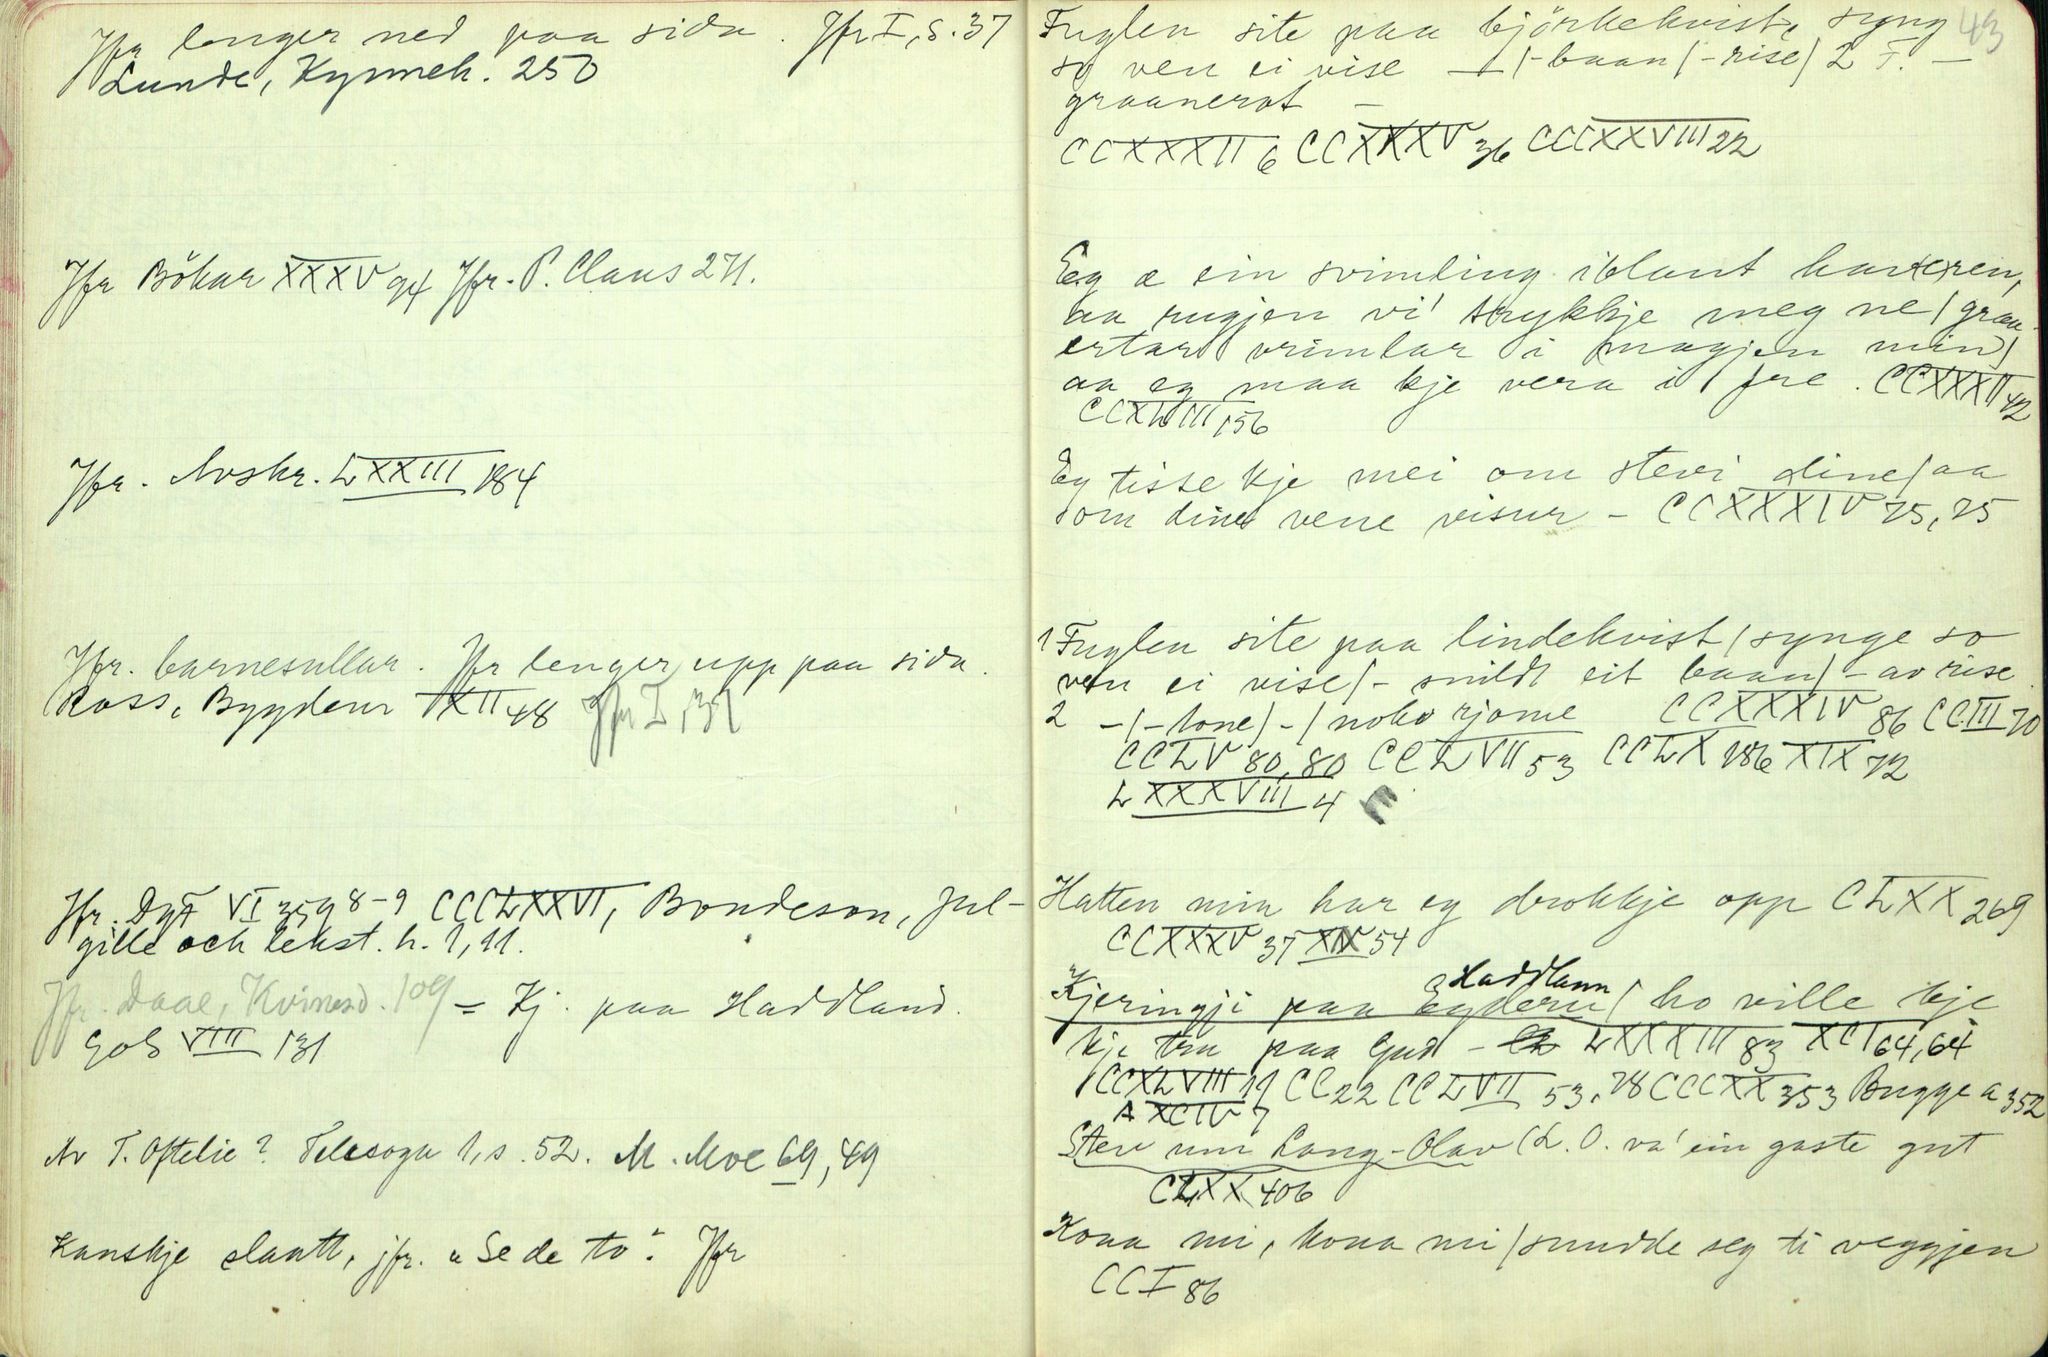 Jfr lenger ned paa sida. Jfr I, s. 37
Lunde, Kynneh. 250
Jfr Bökar XXXV 94 Jfr. P. Claus 271.
Jfr. Avskr. LXXIII 184
Jfr. barnesullar. Jfr lenger upp paa sida.
Ross, Bygdeur XII 48 Jfr I, 37
Jfr. DgF VI 359 8-9 CCCLXXVI, Bondeson, Jul-
gille och lekst. h. 1, 11.
Jfr. Daae, Kvinesd. 109 = Kj. paa Haddland.
GoS VIII 131
Av T. Oftelie? Telesoga 1, s. 52. M. Moe 69, 49
Kanskje slaatt, jfr. "Se de to". Jfr
43
Fuglen site paa bjørkekviste, syng
so ven ei vise — /- baan /- rise / 2 F. —
graanerot —
CCXXXII 6 CCXXXV 36 CCCXXVIII 22
Eg æ ein svimling iblant haveren,
aa rugjen vi' trykkje meg ne / graa-
ertar vrimlar i magjen min /
aa eg maa kje vera i fre. CCXXXII 42
CCXLVIII 156
Eg tisse kje mei om stevi dine / aa
om dine vene visur — CCXXXIV 75, 75
1 Fuglen site paa lindekvist / synge so
ven ei vise / - snildt eit baan / - av rise.
2 - / - kone / - / noko rjome CCXXXIV 86 CCIII 70
CCLV 80, 80 CCLVII 53 CCLX 186 XIX 72
LXXXVIII 4 E
Hatten min har eg drokkje opp CLXX 269
CCXXXV 37 XIV 54
Haddlann
Kjeringji paa Eyderu / ho ville kje
kje tru paa Gud - LXXXIII 83 XCI 64, 64
CCXLVIII 11 CC 22 CCLVII 53, 78 CCCXX 353 Bugge a 352
A XCIV 7
Stev um Lang-Olav (L. O. va' ein gaste gut
CLXX 406
Kona mi, kona mi / snudde seg ti veggjen
CCI 86